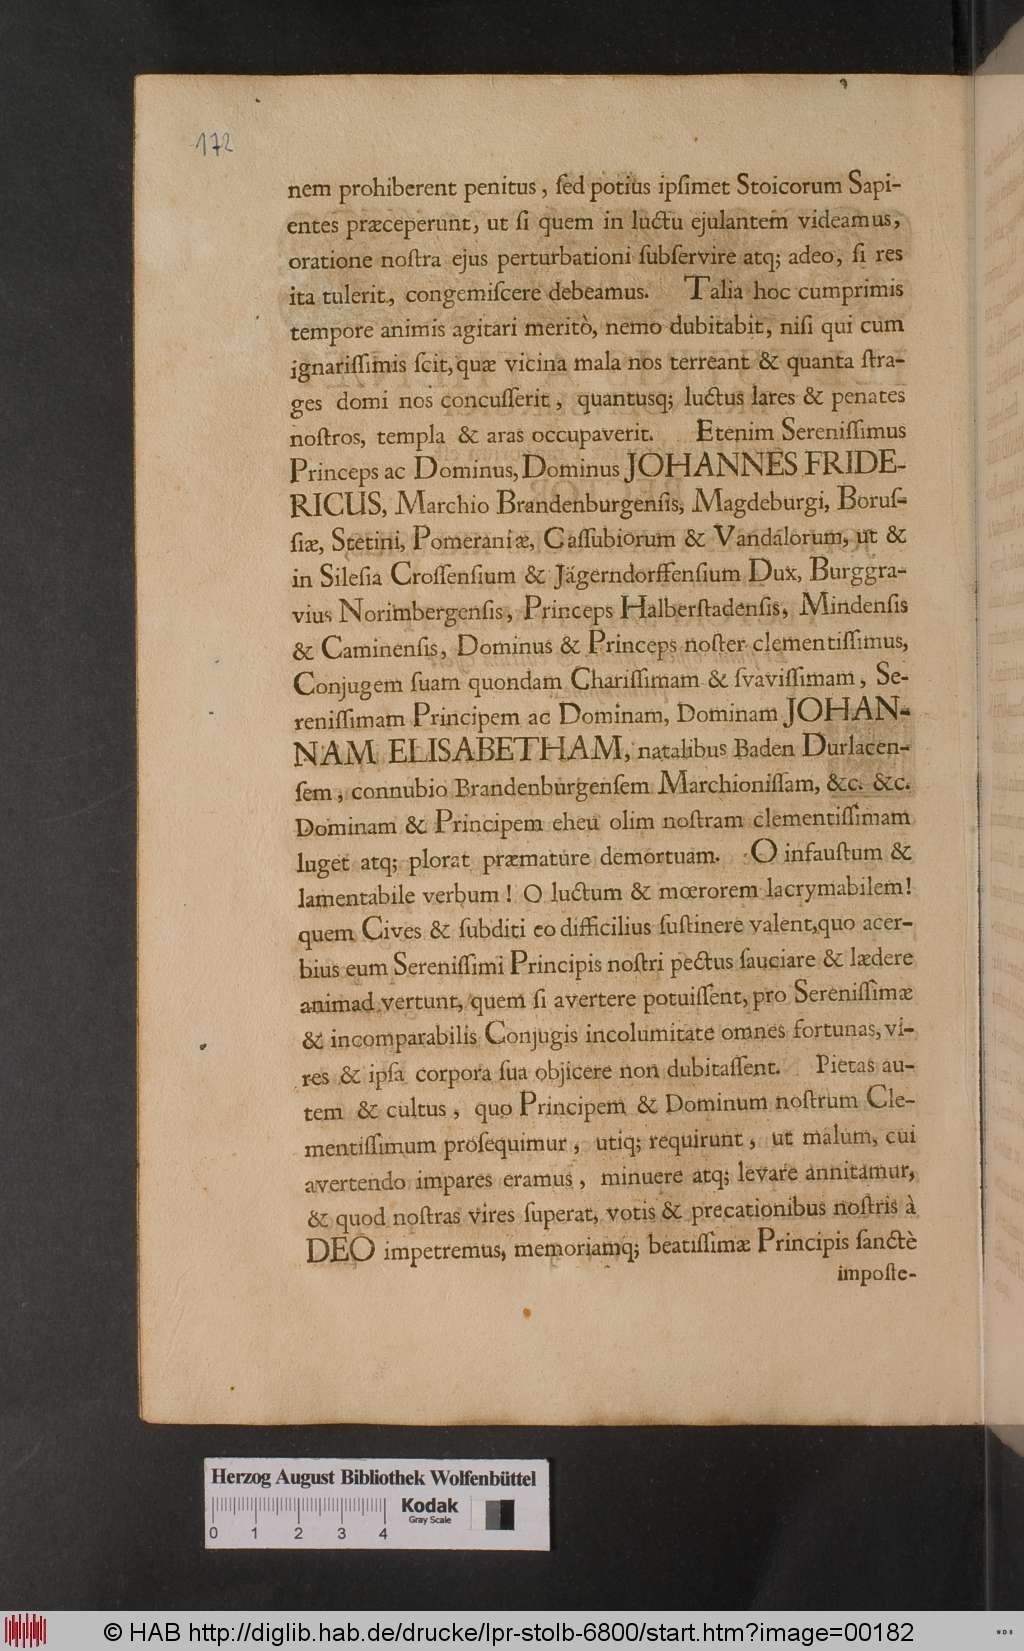 172
nem prohiberent penitus, ſed potius ipſimet Stoicorum Sapi-
entes præceperunt, ut ſi quem in luctu ejulantem videamus,
oratione noſtra ejus perturbationi ſubſervire atq; adeo, ſi res
ita tulerit, congemiſcere debeamus. Talia hoc cumprimis
tempore animis agitari meritò, nemo dubitabit, niſi qui cum
ignariſſimis ſcit, quæ vicina mala nos terreant & quanta ſtra-
ges domi nos concuſſerit, quantusq; luctus lares & penates
noſtros, templa & aras occupaverit. Etenim Sereniſſimus
Princeps ac Dominus, Dominus JOHANNES FRIDE-
RICUS, Marchio Brandenburgenſis, Magdeburgi, Boruſ-
ſiæ, Stetini, Pomeraniæ, Caſſubiorum & Vandalorum, ut &
in Sileſia Croſſenſium & Jägerndorffenſium Dux, Burggra-
vius Norimbergenſis, Princeps Halberſtadenſis, Mindenſis
& Caminenſis, Dominus & Princeps noſter clementiſſimus,
Conjugem ſuam quondam Chariſſimam & ſvaviſſimam, Se-
reniſſimam Principem ac Dominam, Dominam JOHAN-
NAM ELISABETHAM, natalibus Baden Durlacen-
ſem, connubio Brandenburgenſem Marchioniſſam, &c. &c.
Dominam & Principem eheu olim noſtram clementiſſimam
luget atq; plorat præmature demortuam. O infauſtum &
lamentabile verbum! O luctum & mœrorem lacrymabilem!
quem Cives & ſubditi eo difficilius ſuſtinere valent, quo acer-
bius eum Sereniſſimi Principis noſtri pectus ſauciare & lædere
animad vertunt, quem ſi avertere potuiſſent, pro Sereniſſimæ
& incomparabilis Conjugis incolumitate omnes fortunas, vi-
res & ipſa corpora ſua objicere non dubitaſſent. Pietas au-
tem & cultus, quo Principem & Dominum noſtrum Cle-
mentiſſimum proſequimur, utiq; requirunt, ut malum, cui
avertendo impares eramus, minuere atq; levare annitamur,
& quod noſtras vires ſuperat, votis & precationibus noſtris à
DEO impetremus, memoriamq; beatiſſimæ Principis ſanctè
impoſte-
Herzog August Bibliothek Wolfenbüttel
Kodak
Gray Scale
0 1 2 3 4
© HAB http://diglib.hab.de/drucke/lpr-stolb-6800/start.htm?image=00182